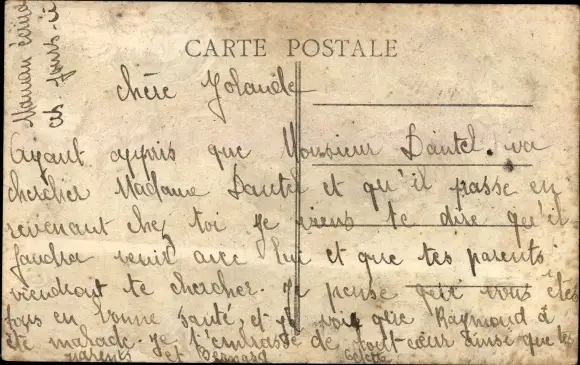 CARTE POSTALE
Maman écrira
ces jours-ci
Chère Yolande
Ayant appris que Monsieur Dautel va
chercher Madame Dautel et qu'il passe en
revenant chez toi je viens te dire qu'il
faudra venir avec lui et que tes parents
viendront te chercher. Je pense que vous êtes
tous en bonne santé, et je vois que Raymond a
été malade. Je t'embrasse de tout cœur ainsi que tes
parents et Bernard
Colette